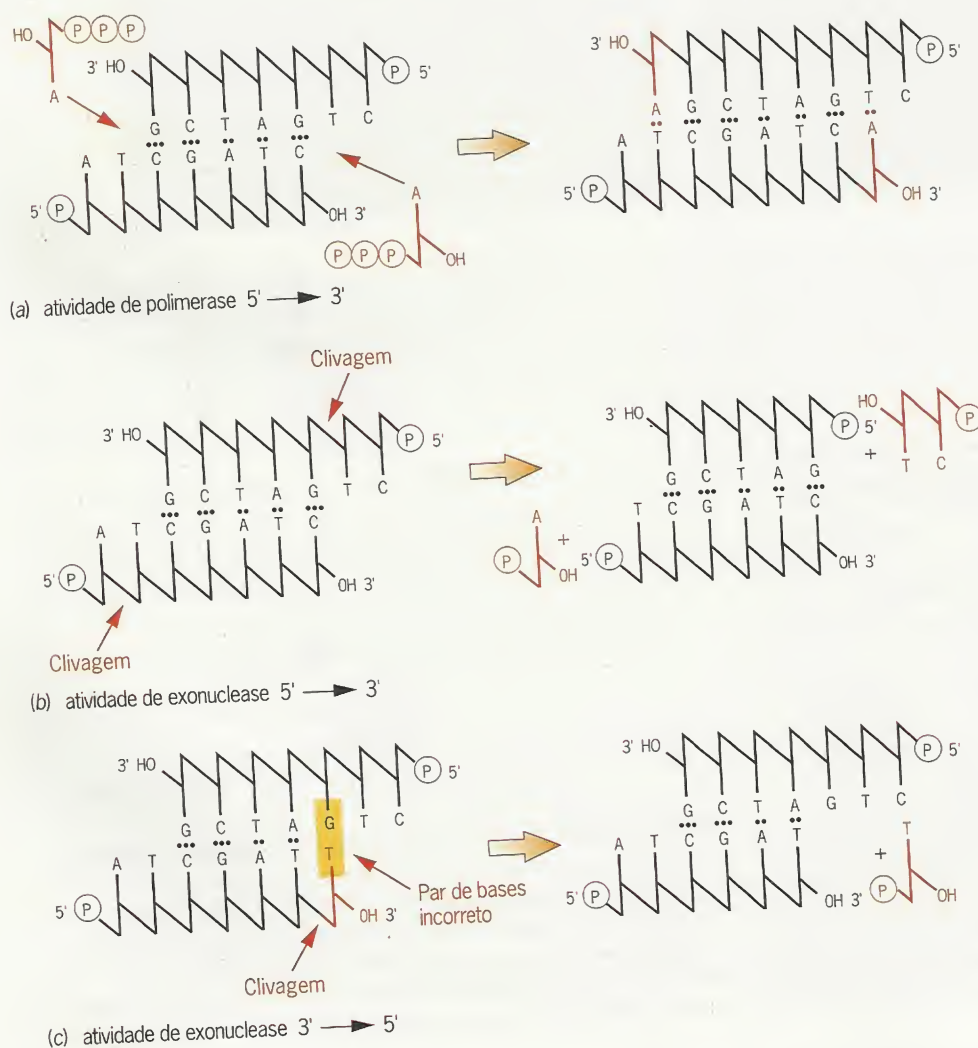 HO P P P
A
3' HO P 5'
G C T A G T C
A T C G A T C
5' P OH 3'
A
P P P OH
3' HO P 5'
A G C T A G T C
A T C G A T C A
5' P OH 3'
(a) atividade de polimerase 5' → 3'
Clivagem
3' HO P 5'
G C T A G T C
A T C G A T C
5' P OH 3'
Clivagem
3' HO P 5' HO P
+ T C
G C T A G
A + T C G A T C
P OH 5' P OH 3'
(b) atividade de exonuclease 5' → 3'
3' HO P 5'
G C T A G T C
A T C G A T T
5' P OH 3'
Par de bases
incorreto
Clivagem
3' HO P 5'
G C T A G T C
A T C G A T
+ T
5' P OH 3' P OH
(c) atividade de exonuclease 3' → 5'